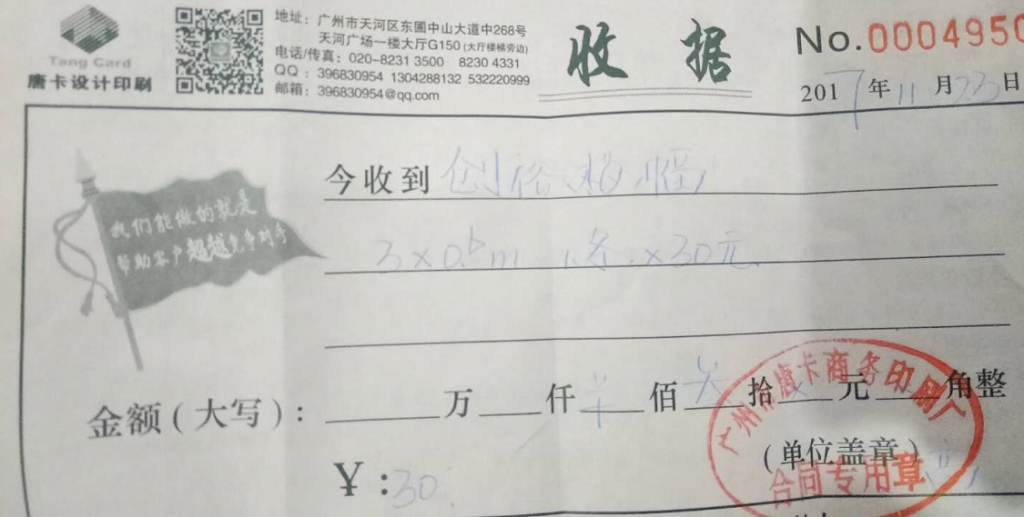 Tang Card
唐卡设计印刷
地址：广州市天河区东圃中山大道中268号
天河广场一楼大厅G150（大厅楼梯旁边）
电话/传真：020-8231 3500 8230 4331
QQ：396830954 1304288132 532220999
邮箱：396830954@qq.com
收 据
No.0004950
2017年11月23日
我们能做的就是
帮助客户超越竞争对手
今收到
3×0.6m 1条×30元
金额（大写）： 万 仟 佰 拾 元 角整
（单位盖章）
¥：30
广州市唐卡商务印刷厂
合同专用章